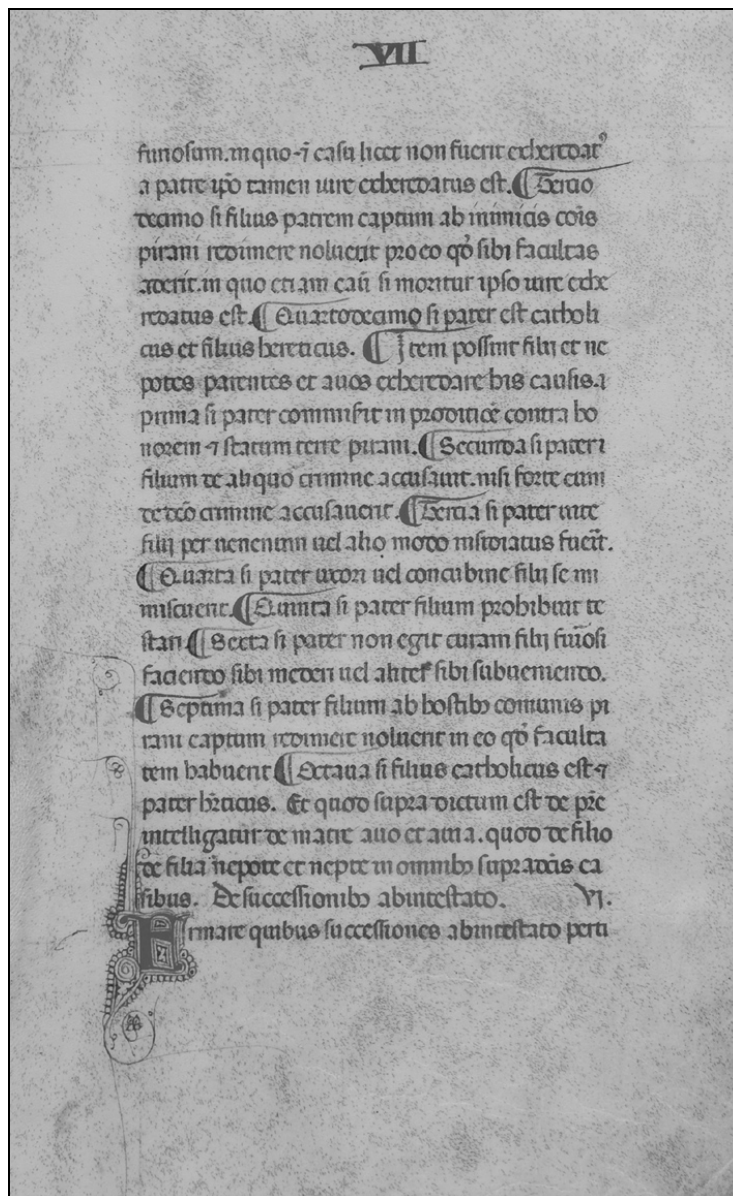 VII
furiosum. in quo ⁊ī casu licet non fuerit exheredatꝰ
a patre ip̄o tamen iure exheredatus est. ¶ Tercio
decimo si filius patrem captum ab inimicis cōis
pirani redimere noluerit pro eo qđ sibi facultas
aderit. in quo etiam casū si moritur ipso iure exhe
redatus est. ¶ Quartodecimo si pater est catholi
cus et filius hereticus. ¶ Item possunt filij et ne
potes parentes et auos exheredare his causis. ⁊
prima si pater commisit in proditiōe contra ho
norem ⁊ statum terre pirani. ¶ Secunda si pater
filium de aliquo crimine accusauit. nisi forte eum
de dc̄o crimine accusauerit. ¶ Tercia si pater uite
filij per uenenum uel alio modo insidiatus fuer̄t.
¶ Quarta si pater uxori uel concubine filij se im
miscuerit. ¶ Quinta si pater filium prohibuit te
stari ¶ Sexta si pater non egit curam filij furiosi
faciendo sibi mederi uel aliter sibi subueniendo.
¶ Septima si pater filium ab hostibꝫ comunis pi
rani captum redimere noluerit in eo qđ faculta
tem habuerit ¶ Octaua si filius catholicus est ⁊
pater hr̄ticus. Et quod supra dictum est de pr̄e
intelligatur de matre auo et auia. quod de filio
de filia nepote et nepte in omnibꝫ supradc̄is ca
sibus. De successionibꝫ abintestato. VI.
Firmare quibus successiones abintestato perti